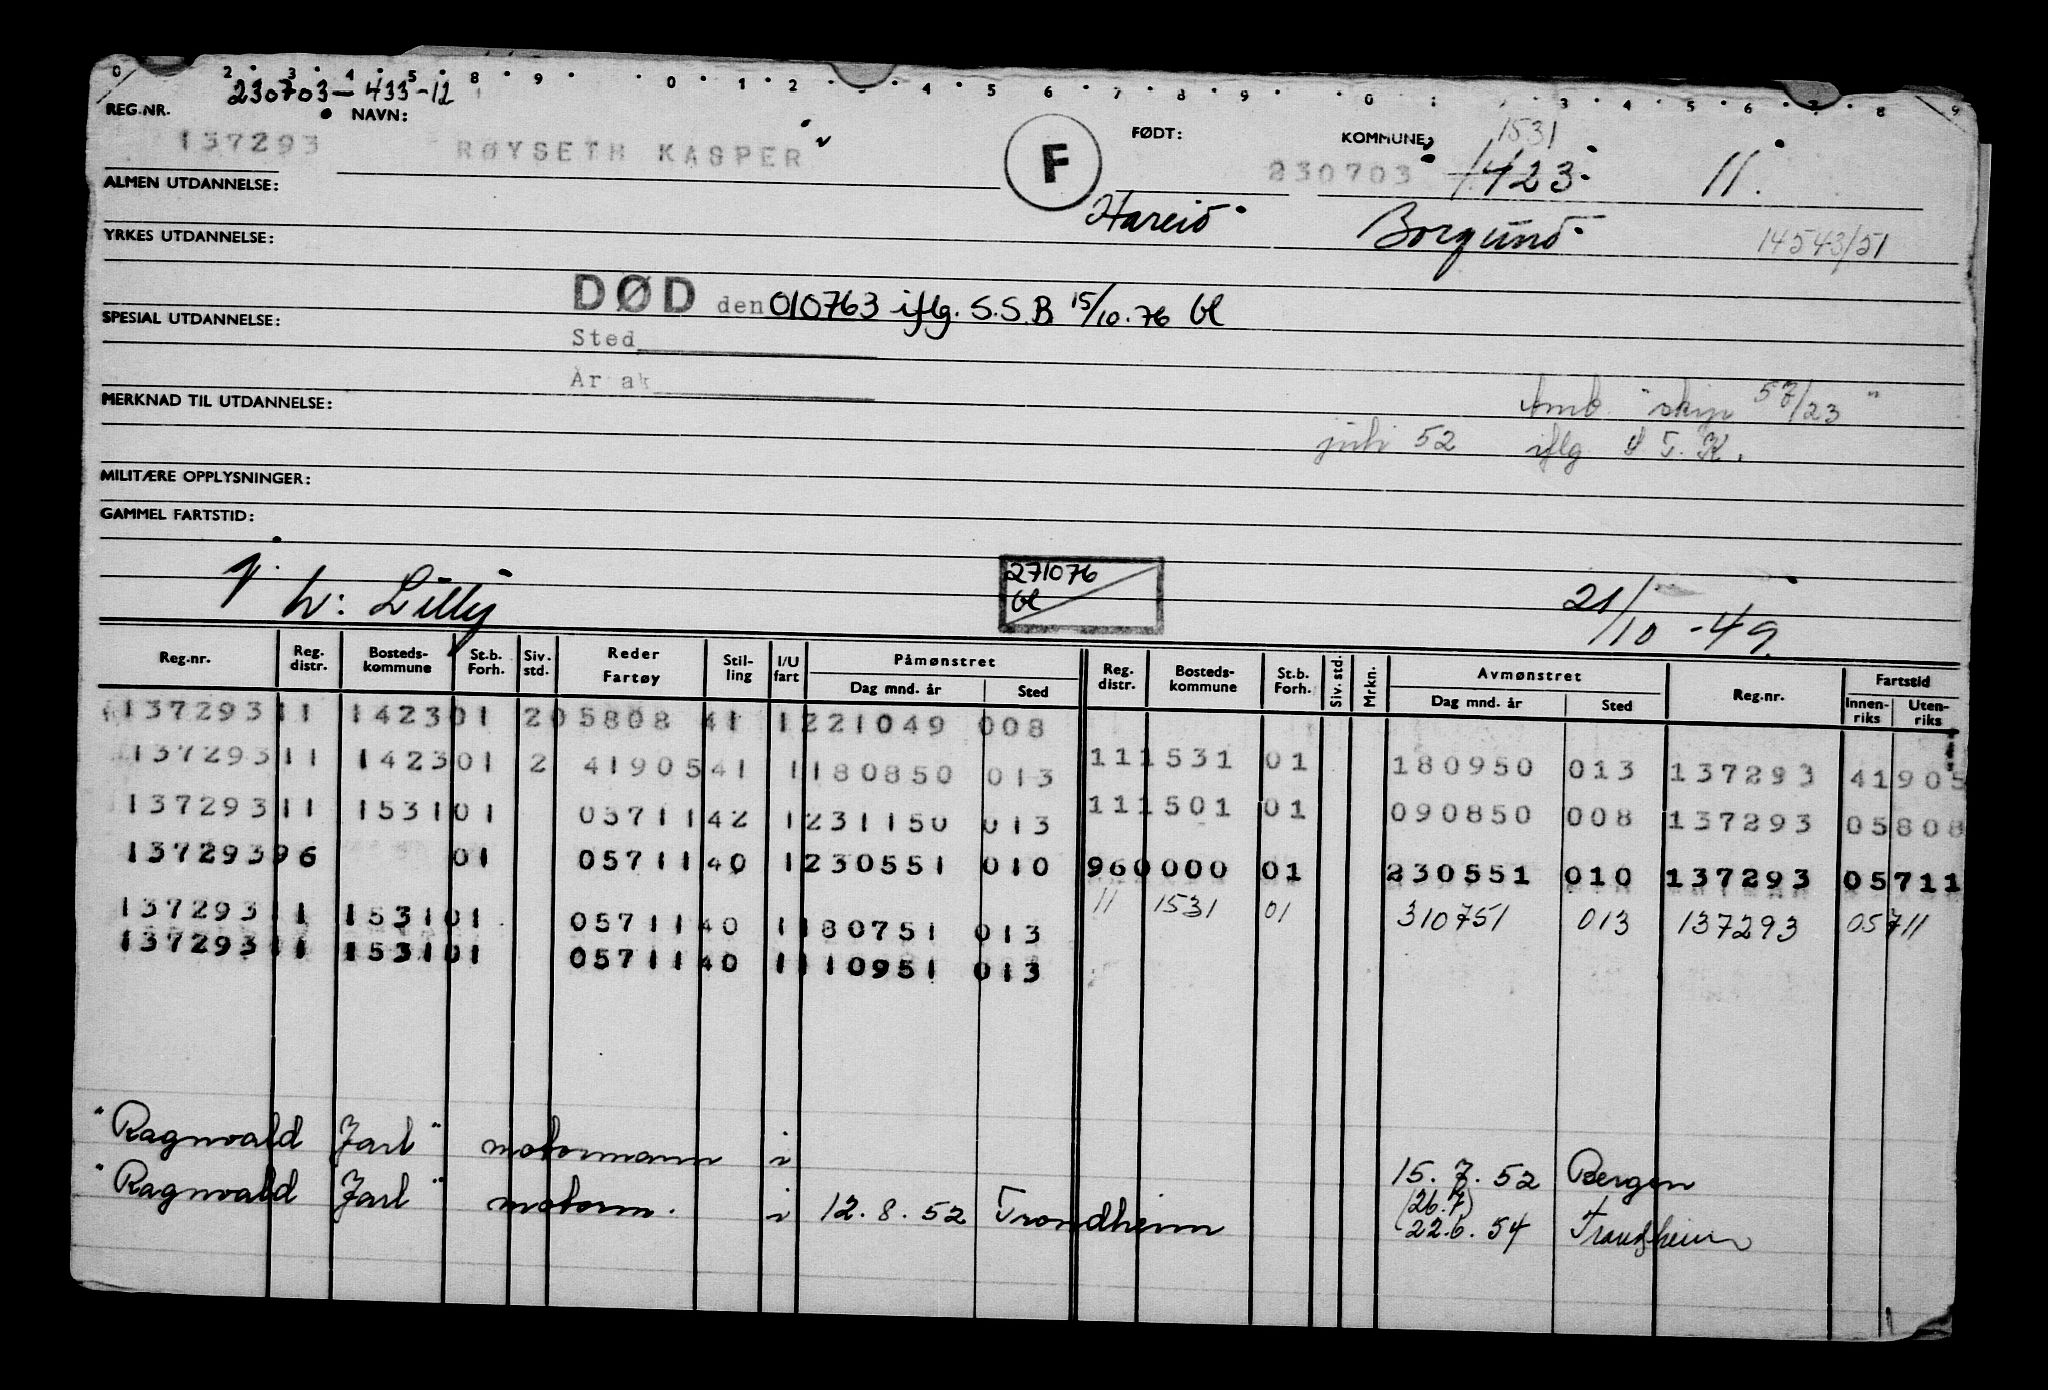 0 2 3 4 5 8 9 0 1 2 4 5 6 7 8 9 0 1 3 4 5 6 7 8 9
230703-433-12
REG.NR. NAVN: FØDT: KOMMUNE: 1531
137293 RØYSETH KASPER F 230703 1423 11.
ALMEN UTDANNELSE:
Hareid Borgund
YRKES UTDANNELSE: 14543/51
DØD den 010763 iflg. S.S.B 15/10.76 bl
SPESIAL UTDANNELSE:
Sted
Årsak
MERKNAD TIL UTDANNELSE: "skip 57/23"
juli 52 iflg S.T.K.
MILITÆRE OPPLYSNINGER:
GAMMEL FARTSTID:
271076
bl
h: Lilly 21/10-49.
Reg.nr. Reg. distr. Bosteds-kommune St.b. Forh. Siv. std. Reder Fartøy Stil-ling I/U fart Påmønstret Reg. distr. Bosteds-kommune St.b. Forh. Siv. std. Mrkn. Avmønstret Reg.nr. Fartstid
Dag mnd. år Sted Dag mnd. år Sted Innen-riks Uten-riks
137293 11 1423 01 2 05808 41 1 221049 008
137293 11 1423 01 2 41905 41 1 180850 013 11 1531 01 180950 013 137293 41905
137293 11 1531 01 05711 42 1 231150 013 11 1501 01 090850 008 137293 05808
137293 96 01 05711 40 1 230551 010 96 0000 01 230551 010 137293 05711
137293 11 1531 01 05711 40 1 180751 013 11 1531 01 310751 013 137293 05711
137293 11 1531 01 05711 40 1 110951 013
"Ragnvald Jarl" motormann i 15.7.52 Bergen
(26.7)
"Ragnvald Jarl" motorm. i 12.8.52 Trondheim 22.6.54 Trondheim